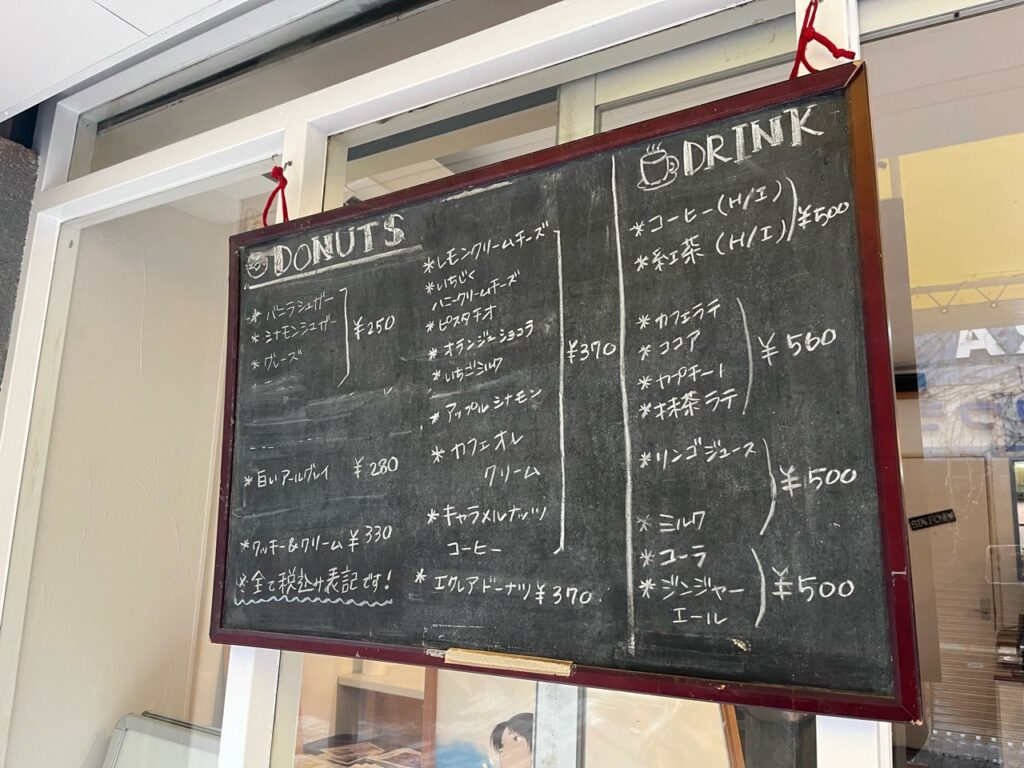 DONUTS
* バニラシュガー
* シナモンシュガー
* グレーズ
¥250
* 白いアールグレイ ¥280
* クッキー&クリーム ¥330
※全て税込み表記です!
* レモンクリームチーズ
* いちじく
ハニークリームチーズ
* ピスタチオ
* オランジェショコラ
* いちごミルク
* アップルシナモン
* カフェオレ
クリーム
* キャラメルナッツ
コーヒー
¥370
* エクレアドーナツ ¥370
DRINK
* コーヒー (H/I)
* 紅茶 (H/I)
¥500
* カフェラテ
* ココア
* カプチーノ
* 抹茶ラテ
¥560
* リンゴジュース
* ミルク
¥500
* コーラ
* ジンジャー
エール
¥500